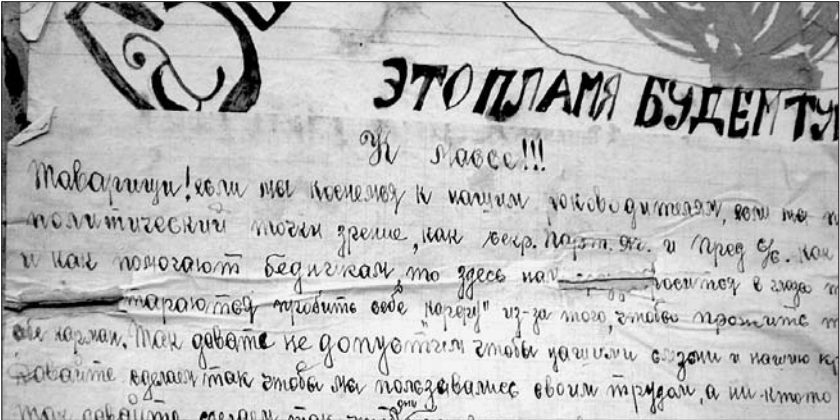 ЭТО ПЛАМЯ БУДЕМ ТУ
К массе!!!
Товарищи! если мы коснемся к нашим роководителям, если мы п
политический точки зрение, как секр. парт. яч. и пред с/с. как
и как помогают беднякам, то здесь нам бросится в глаза
тараются пробить себе "кареру" из-за того, чтобы прожить
себе карман. Так давайте не допустим чтобы нашими слезами и нашию к
давайте сделаем так чтобы мы ползавались своим трудом, а ни-кто то
так давайте сделаем так чтобы они